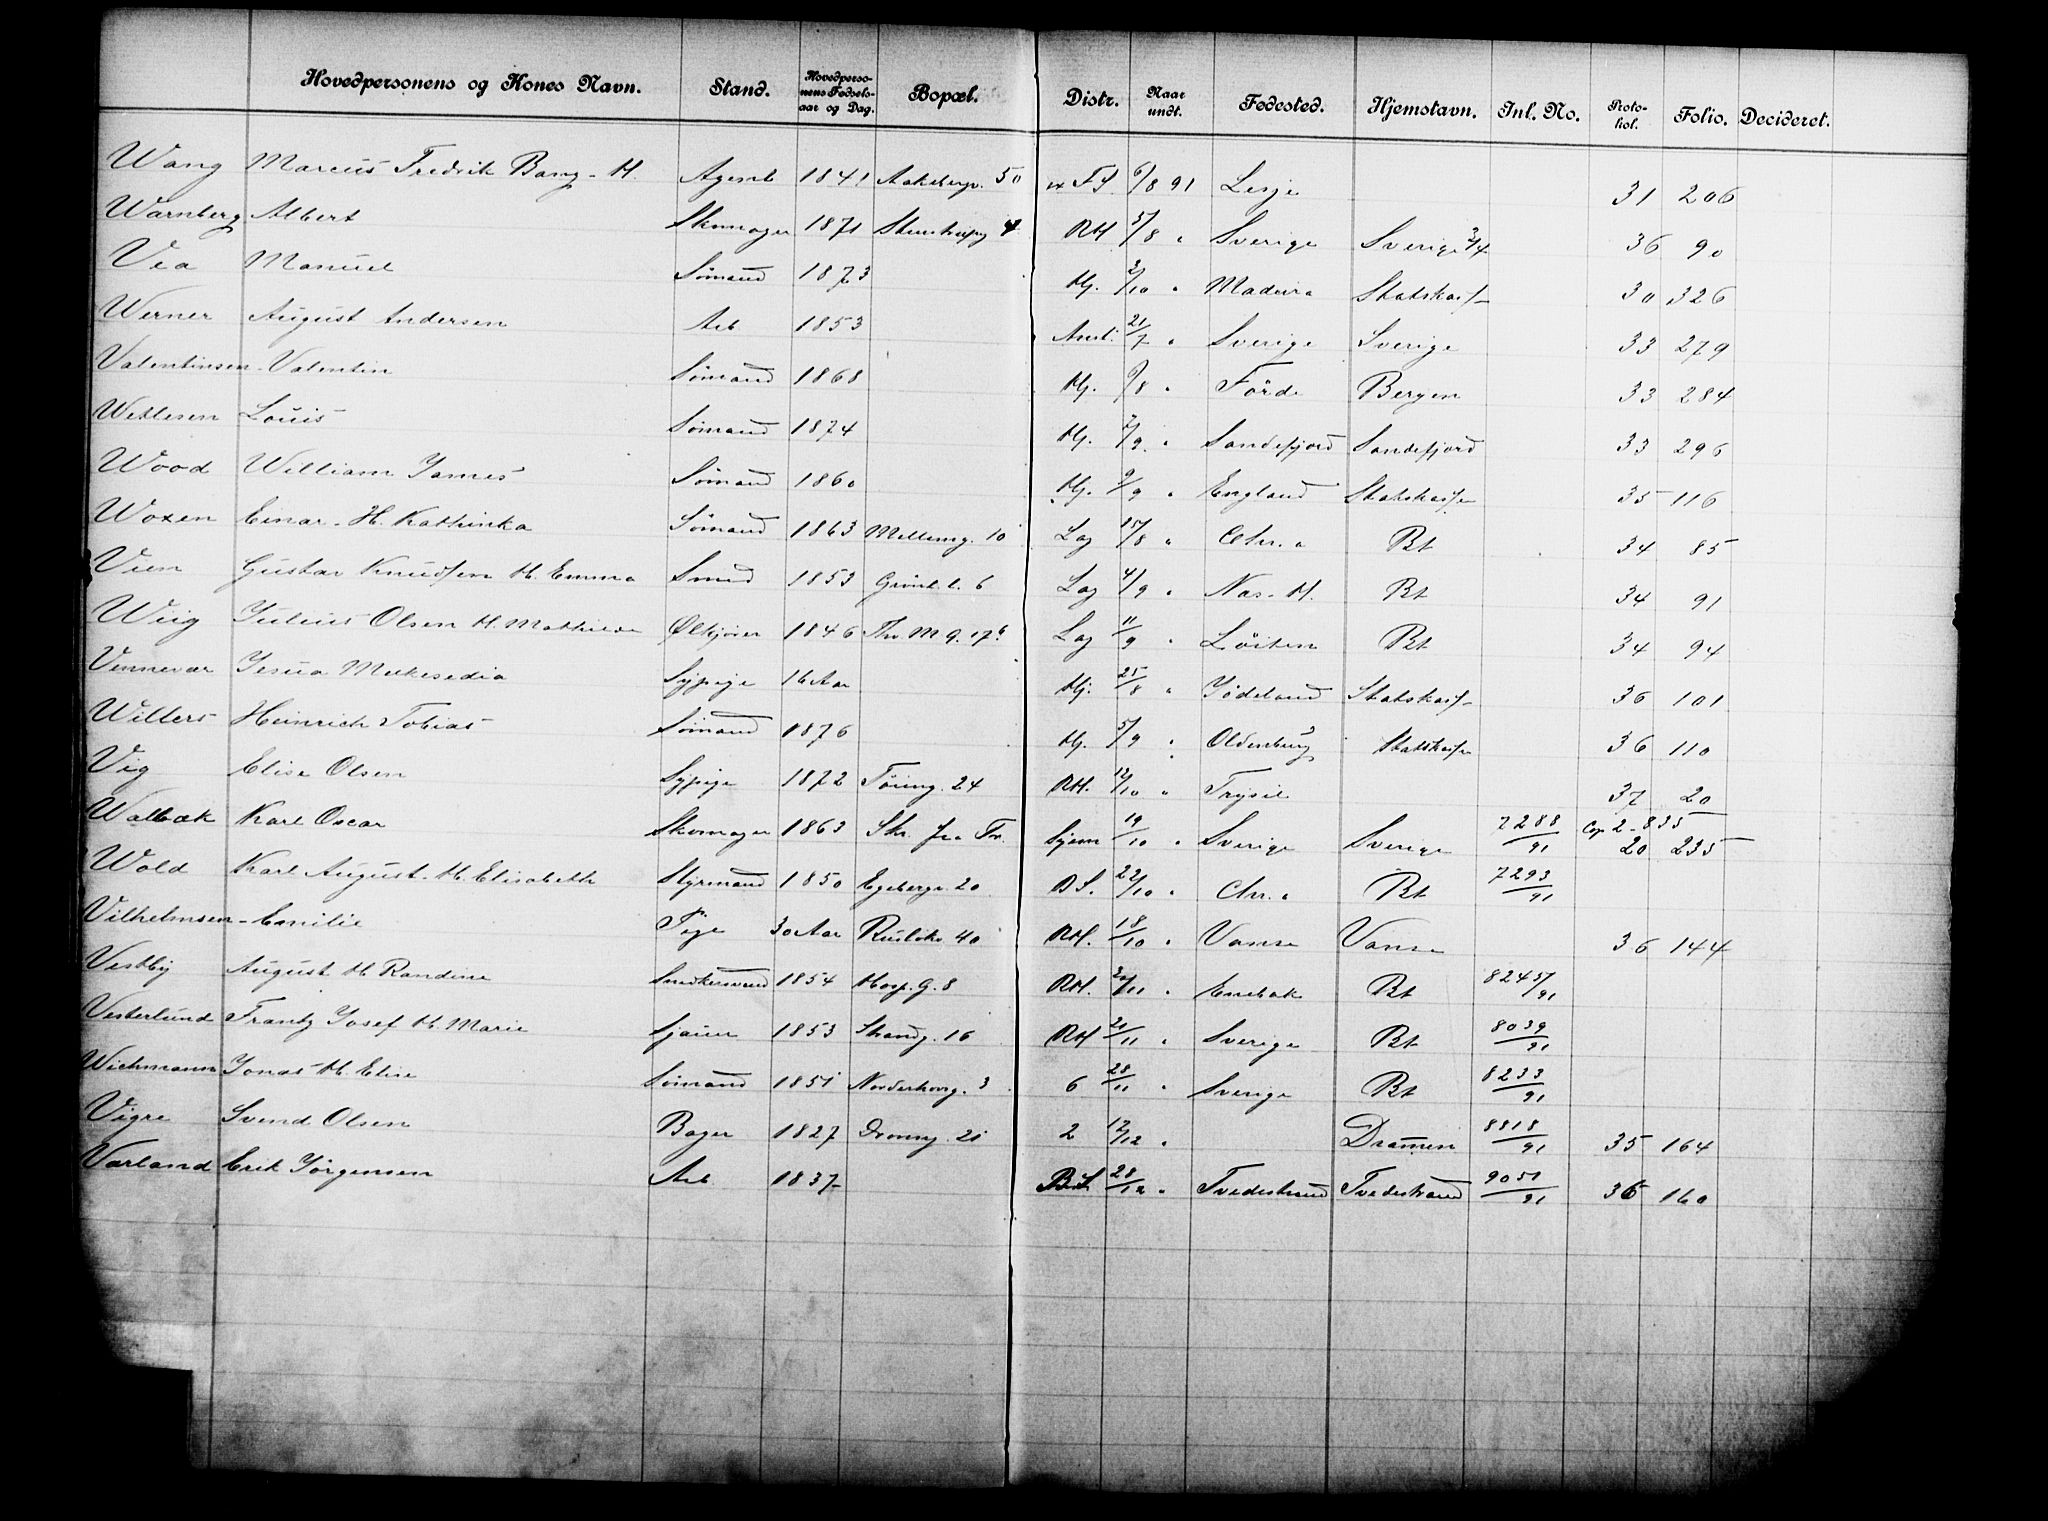 Hovedpersonens og Kones Navn. Stand. Hovedpersonens Fødselsaar og Dag. Bopæl. Distr. Naar undt. Fødested. Hjemstavn. Inl. No. Protokol. Folio. Decideret.
Wang Marcus Fredrik Bang - H. Agent 1841 Akebergv. 50 FS 6/8 91 Lesje 31 206
Warnberg Albert Skomager 1871 4 RH 5/8 " Sverige Sverige 3/4 36 90
Via Manuel Sømand 1873 Hj. 2/10 " Madeira Statskass 30 326
Werner August Andersen Arb 1853 21/7 " Sverige Sverige 33 279
Valentinsen - Valentin Sømand 1868 Hj. /8 " Förde Bergen 33 284
Wetlesen Louis Sømand 1874 Hj. 7/9. " Sandefjord Sandefjord 33 296
Wood William James Sømand 1860 Hj. 9/9 " England Statskasse 35 116
Woxen Einar - H. Kathinka Sømand 1863 Mellemg. 10 Lag 15/8 " Chr.a Bt 34 85
Vien Gustav Knudsen H. Emma Smed 1853 Grønl. l. 6 Lag 4/9 " Nas. H. Bt 34 91
Wiig Julius Olsen H. Mathilde Ølkjører 1846 Thv M g. 17 Lag 11/9 " Löiten Bt 34 94
Vennevar Jesua Melkesedia Sypige 16 Aar Hj. 25/8 " Jödeland Statskass 36 101
Willers Heinrich Tobias Sømand 1876 Hj. 5/9 " Oldenburg Statskasse 36 110
Vig Elise Olsen Sypige 1872 Töieng. 24 RH. 12/10 " Trysil 37 20
Walbæk Karl Oscar Skomager 1863 Str. fra Tv. Hjem 19/10 " Sverige Sverige 7288/91 Cop 2 - 835 20 235
Wold Karl August - H. Elisabeth Styrmand 1850 Egebergv. 20 BS. 22/10 " Chr.a Bt 7293/91
Vilhelmsen - Emilie Pige 30 Aar Ruslökv. 40 RH. 18/10 " Vanse Vanse 36 144
Vestby August H Randine Snedkersvend 1854 Hosp. G. 8 RH. /11 " Enebak Bt 8245/91
Vesterlund Frantz Josef H. Marie Sjauer 1853 Strandg. 16 RH 20/11 " Sverige Bt 8039/91
Wichmann Jonas H. Elise Sømand 1851 Norderhovg. 3 6 28/11 " Sverige Bt 8233/91
Vigre Svend Olsen Bager 1827 Dronng. 21 2 12/12 " Dramen 8818/91 35 164
Varland Erik Jørgensen Arb 1837 BS 28/12 " Tvedestrand Tvedestrand 9051/91 36 160